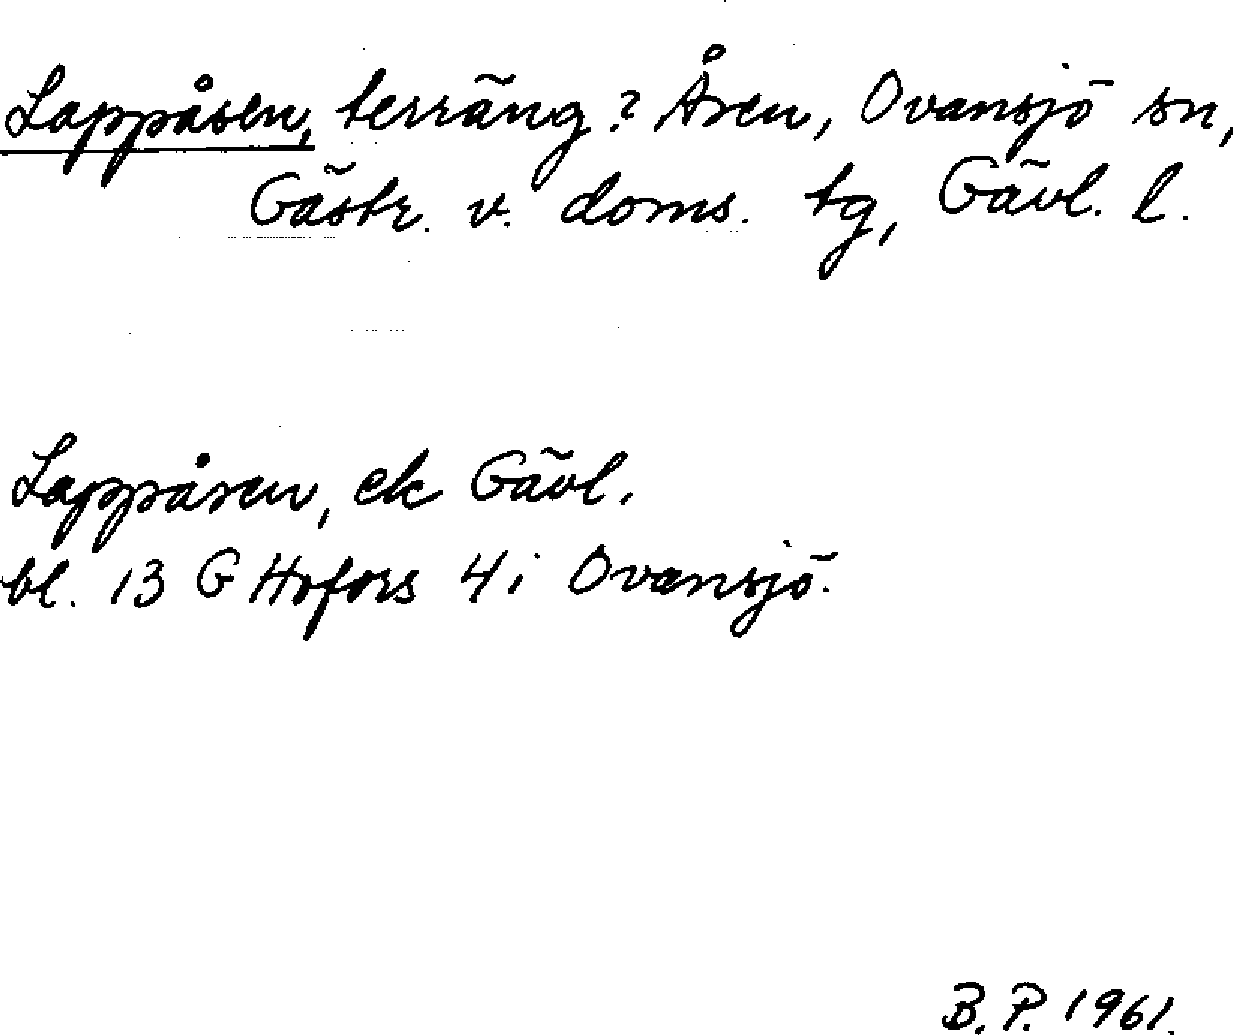 Lappåsen, terräng? Åsen, Ovansjö sn,
Gästr. v. doms. tg, Gävl. l.
Lappåsen, ek Gävl.
bl. 13 G Hofors 4 i Ovansjö.
B. P. 1961.